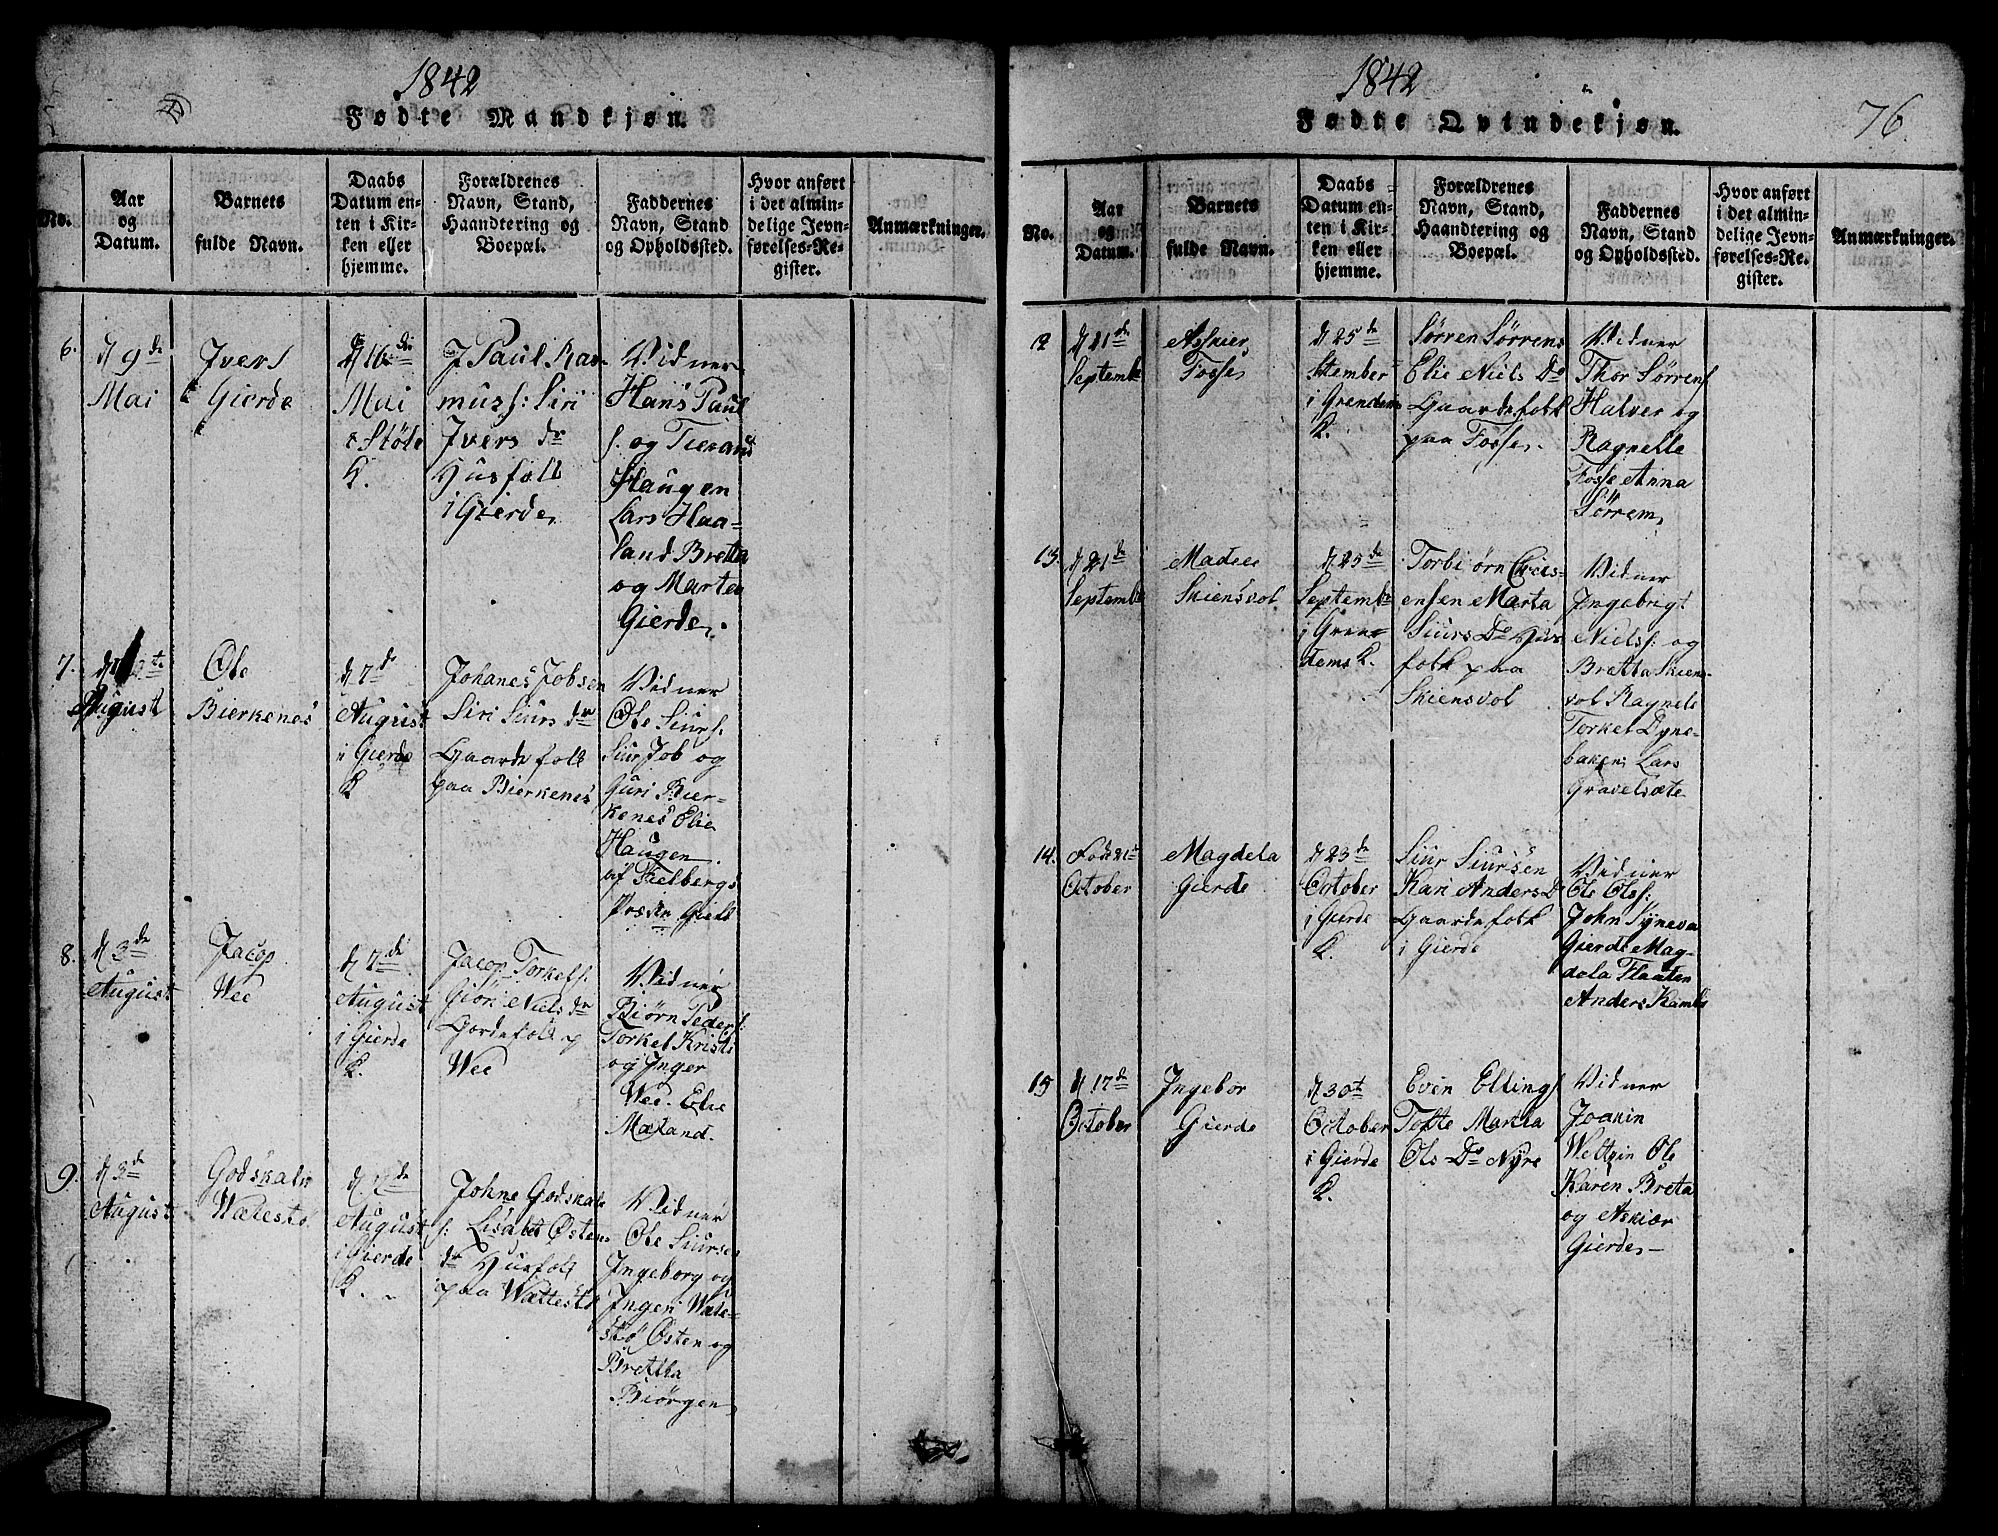 1842
Fødte Mandkjøn.
No.
Aar
og
Datum.
Barnets
fulde Navn.
Daabs
Datum en-
ten i Kir-
ken eller
hjemme.
Forældrenes
Navn, Stand,
Haandtering og
Boepæl.
Faddernes
Navn, Stand
og Opholdssted.
Hvor anført
i det almin-
delige Jevn-
førelses-Re-
gister.
Anmærkninger.
6.
d 9de
Mai
Ivers
Gierde
d 16de
Mai
i Støle
K.
J Paul Ras-
mus f: Siri
Ivers dr
Husfolk
i Gierde
Vidner
Hans Paul
f. og
Haugen
Lars Haa-
land Bretta
og Marta
Gierde
7.
August
Ole
Bierkenes
d 7de
August
i Gierde
K
Johanes Jobsen
Siri Siurs dr
Gaardefolk
paa Bierkenes
Vidner
Ole Siurs.
Siur Job og
Guri Bier-
kenes Elie
Haugen
af Fielbergs
8.
d 3de
August
Jacop
Wee
d 7de
August
i Gierde
K.
Jacop Torkels.
Niels dr
Gordefolk p
Wee
Vidner
Biørn Peders:
Torkel Kristi
og Inger
Wee. Elie
Mæland.
9.
d 3de
August
Godskalk
Wætestø
d 7de
August
i Gierde
K.
Johne Godskalk
f: Lisabet Østen
dr Husfolk
paa Wættestø
Vidner
Ole Siursen
Ingeborg og
Inger Wæte-
stø Østen og
Bretta
Biørgen
1842
Fødte Qvindekjøn.
76
No.
Aar
og
Datum.
Barnets
fulde Navn.
Daabs
Datum en-
ten i Kir-
ken eller
hjemme.
Forældrenes
Navn, Stand,
Haandtering og
Boepæl.
Faddernes
Navn, Stand
og Opholdssted.
Hvor anført
i det almin-
delige Jevn-
førelses-Re-
gister.
Anmærkninger.
12
d 21de
Septemb
Askier
Fosse
d 25de
Stember
i Grendem
K.
Sørren Sørrens
Elie Niels Do
Gaardefolk
paa Fosse.
Vidner
Thor Sørrens
Halver og
Ragnelle
Fosse Anna
Sørrem
13.
d 21de
Septemb
Madee
Skiensvol
d 25de
Septemb
i Gren-
dems K.
Torbiørn Cris-
ensen Marta
Siurs Do Hus
folk paa
Skiensvol
Vidner
Ingebrigt
Niels f: og
Bretta Skiens-
vol Ragnele
Torkel Dyne-
baken Lars
Gravelsæte
14.
Fød 21t
October
Magdela
Gierde
d 23de
October
i Gierde
K.
Siur Siursen
Kari Anders D
Gaardefolk
i Gierde
Vidner
Ole Ols f:
John Syneva
Gierde Mag-
dela Flaaten
Anders Kambe
15
d 17de
October
Ingebor
Gierde
d 30t
October
i Gierde
K.
Even Ellings
Tofte Marta
Ols Do Nyre
Vidner
Joakin
Wettvin Ole
Karen Breta
og Askiær
Gierde